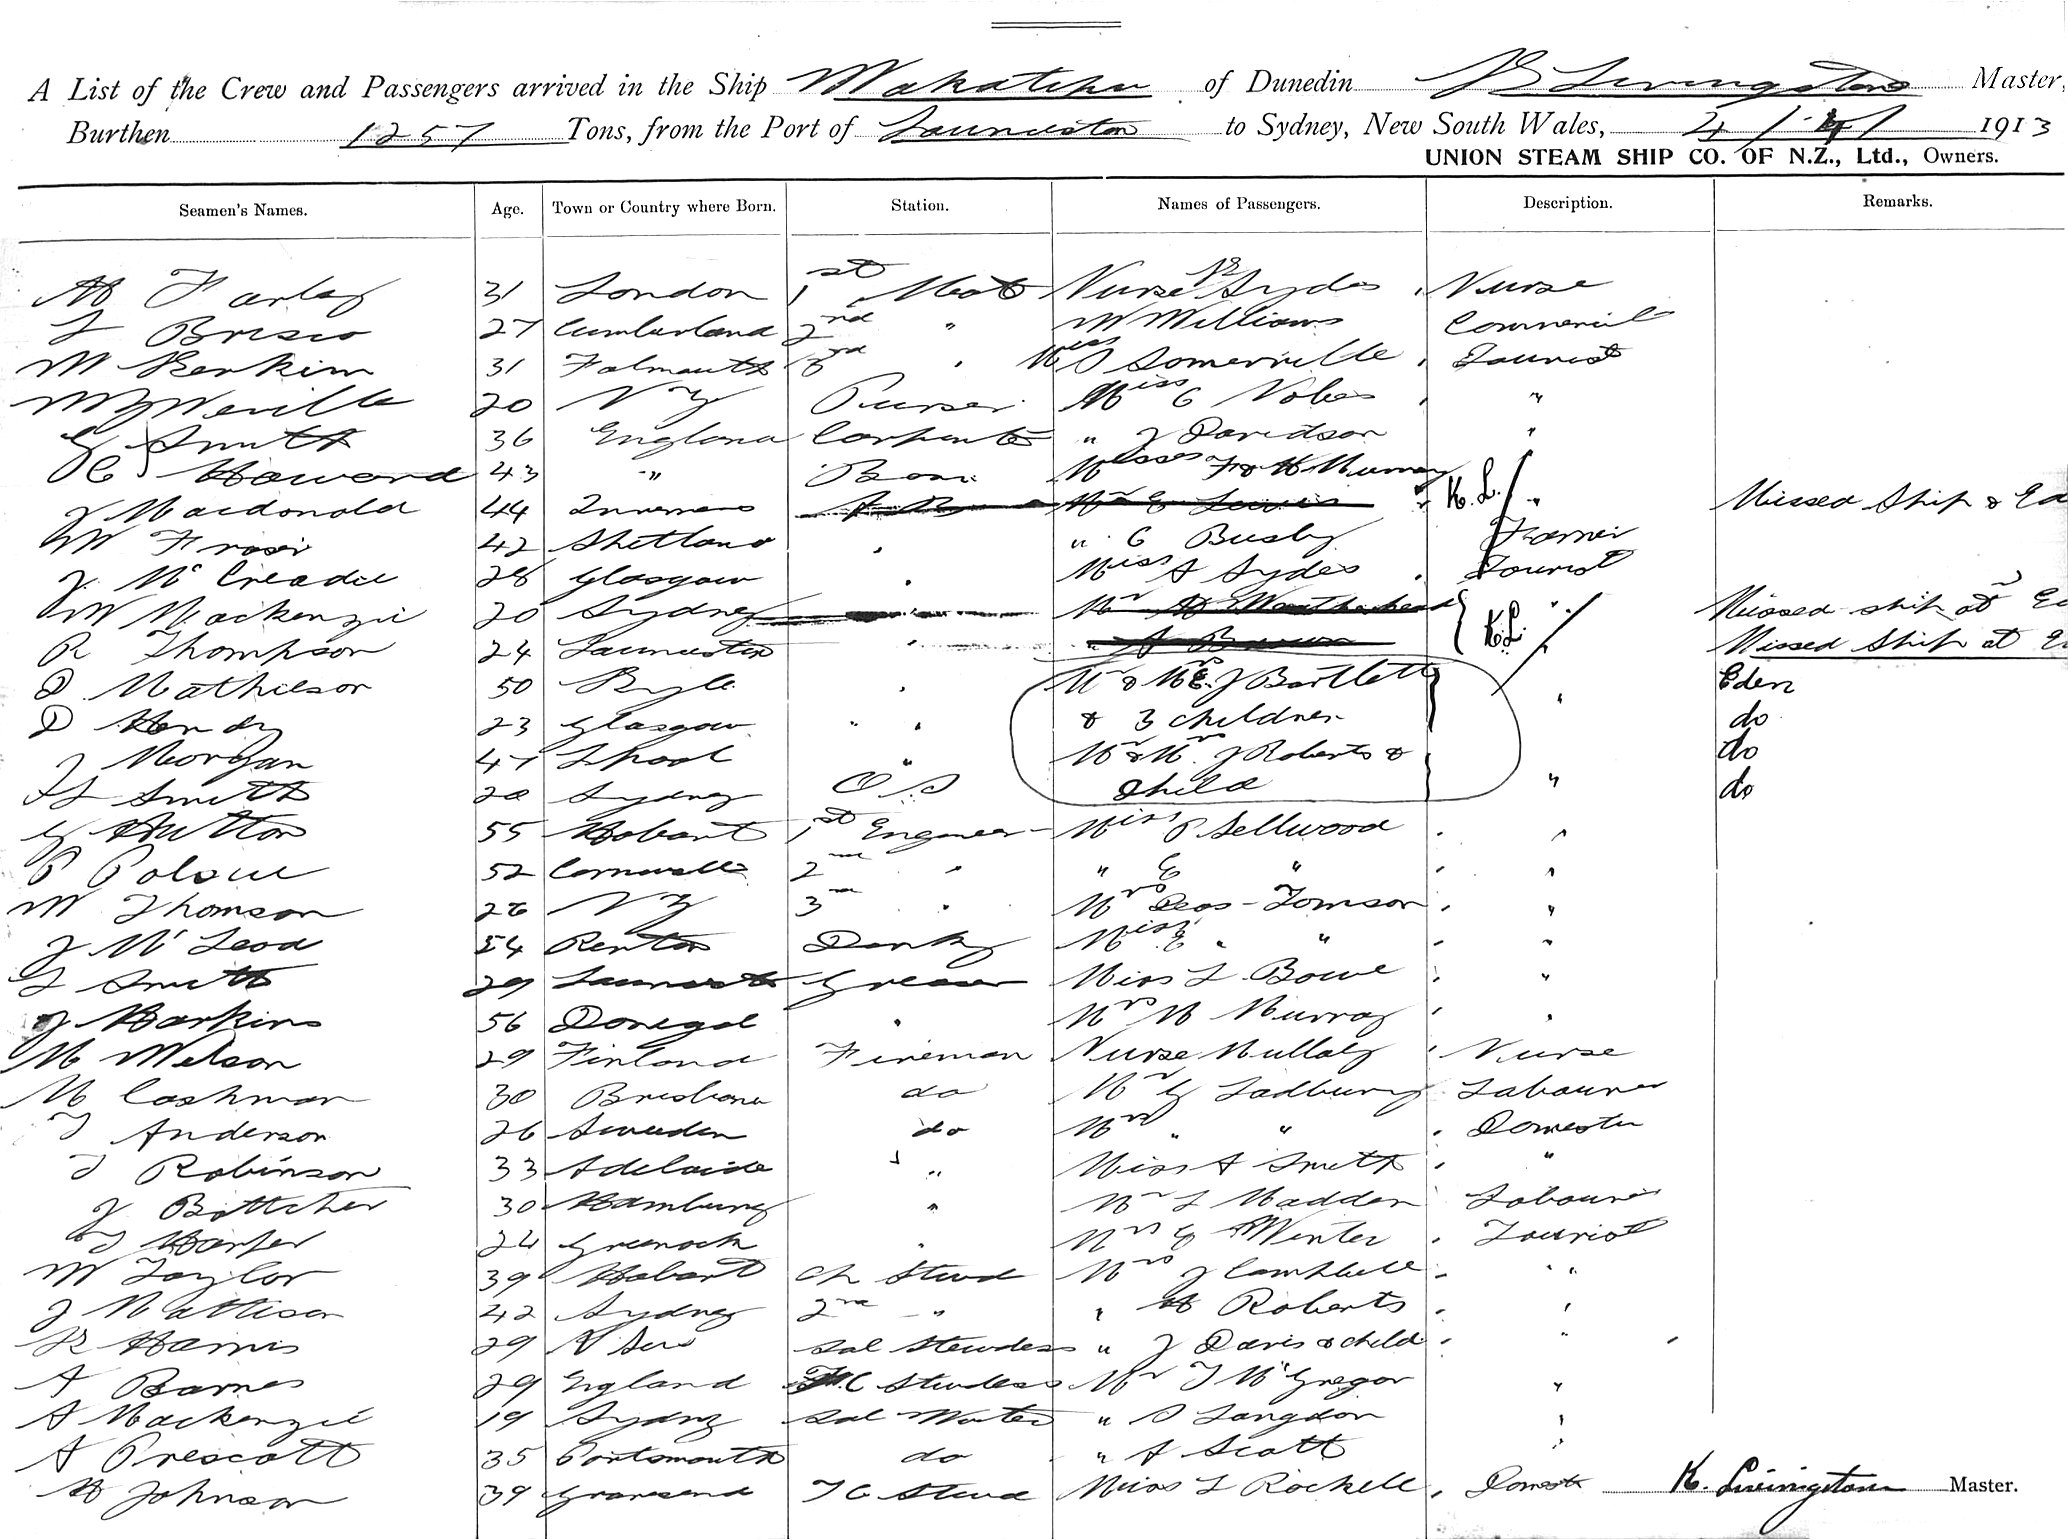 A List of the Crew and Passengers arrived in the Ship Wakatipu of Dunedin Livingstone Master,
Burthen 1257 Tons, from the Port of Launceston to Sydney, New South Wales, 4 / / 1913
UNION STEAM SHIP CO. OF N.Z., Ltd., Owners.
Seamen's Names. Age. Town or Country where Born. Station. Names of Passengers. Description. Remarks.
31 London 1st Mate Nurse Sydes Nurse
Brisco 27 Cumberland 2nd " W Williams Commercial
W 31 Falmouth 3rd " Miss Somerville Tourist
W Neville 20 N Z Purser Miss C "
G Smith 36 England Carpenter " J Davidson "
C Howard 43 " Bosn Misses Murray
J Macdonald 44 Inverness A B Mr E Lewis K.L. " Missed Ship & Ed
W Fraser 42 Shetland " C Busby Farmer
J. McCreadie 28 Glasgow Miss A Sydes Tourist
W Mackenzie 20 Sydney Mr Weatherhead " Missed ship at Ed
R Thompson 24 Launceston " A Brown K.L. Missed Ship at
D Mathieson 50 Mr & Mrs J Bartlett " Eden
D Hendry 23 Glasgow " & 3 children do
J Morgan 47 L'pool " Mr & Mrs J Roberts & do
Smith 20 Sydney O S Child " do
G Hutton 55 Hobart 1st Engineer Miss P Sellwood "
P Polsue 52 Cornwall 2nd " " E " "
W Thomson 28 N Z 3rd " Mrs Deas-Tomson "
J McLeod 54 Renton Donky Miss E " " "
Smith 29 Launceston Greaser Miss L Bowe "
J Harkins 56 Donegal " Mrs M Murray "
M Nelson 29 Finland Fireman Nurse Mullaly Nurse
M Cashman 30 Brisbane do Mr G Ladbury Labourer
Anderson 26 Sweden do Mrs " " Domestic
Robinson 33 Adelaide " Miss A Smith "
J Bottcher 30 Hamburg " Mr L Madden Labourer
Harper 24 Greenock " Mrs Winter Tourist
W Taylor 39 Hobart Ch Stewd Mrs J Campbell "
J Mattison 42 Sydney 2nd " " H Roberts "
Harris 29 N Sea Sal Stewdess " J Davis & child "
A Barnes 29 England Stewdess Mr McGregor "
A Mackenzie 19 Sydney Sal Waiter " Langdon "
A Prescott 35 Portsmouth do " A Scott "
H Johnson 39 Gravesend Stewd Miss L Rockell Domestic K. Livingstone Master.